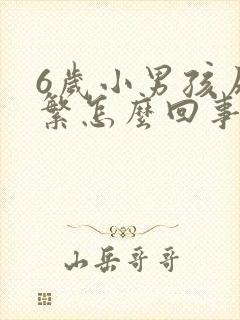 6歲小男孩
繁怎麼回事
山岳哥哥